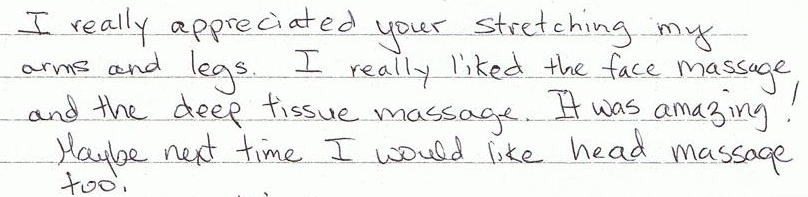 I really appreciated your stretching my
arms and legs. I really liked the face massage
and the deep tissue massage. It was amazing!
Maybe next time I would like head massage
too.